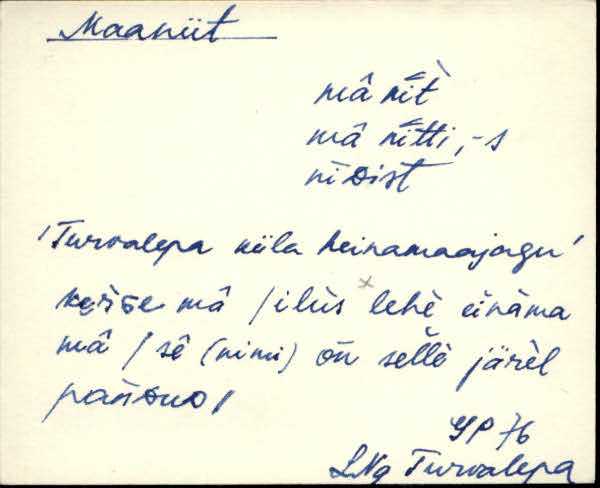 Maaniit
mâ nīt̀
mâ nītti, -s
nīDist
'Turvalepa küla heinamaajagu'
mâ / ilùs lehè einàma
mâ / sê (nimi) ōn sellè järèl
panDuD /
YP 76
LNg Turvalepa